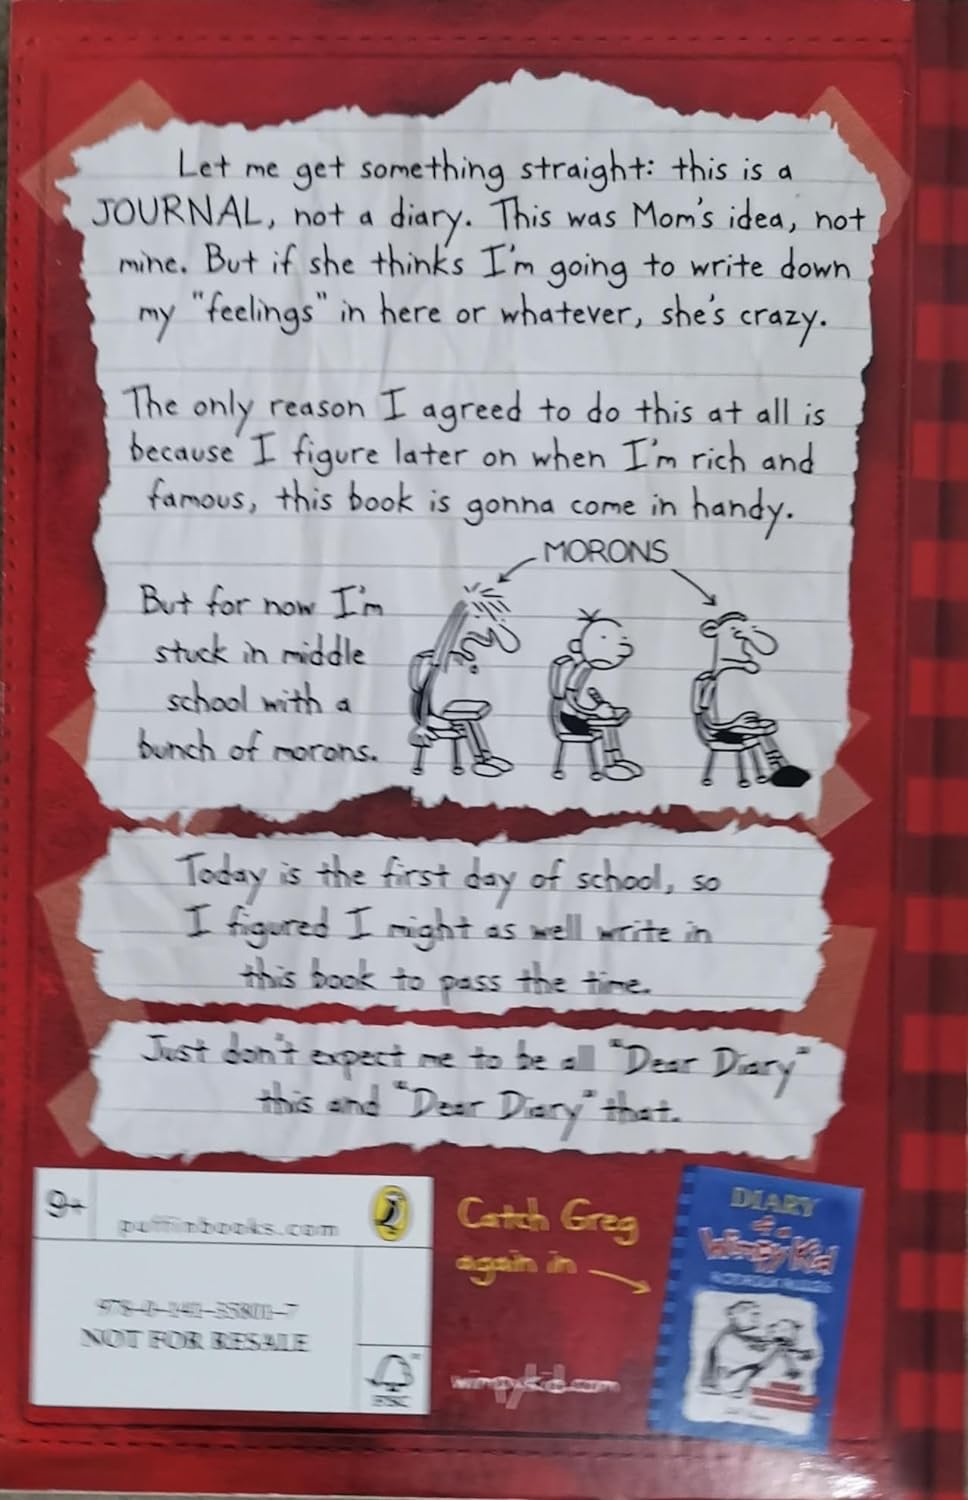 Let me get something straight: this is a
JOURNAL, not a diary. This was Mom's idea, not
mine. But if she thinks I'm going to write down
my "feelings" in here or whatever, she's crazy.
The only reason I agreed to do this at all is
because I figure later on when I'm rich and
famous, this book is gonna come in handy.
MORONS
But for now I'm
stuck in middle
school with a
bunch of morons.
Today is the first day of school, so
I figured I might as well write in
this book to pass the time.
Just don't expect me to be all "Dear Diary"
this and "Dear Diary" that.
9+
puffinbooks.com
NOT FOR RESALE
FSC
Catch Greg
again in
wimpykid.com
DIARY
of a
Wimpy Kid